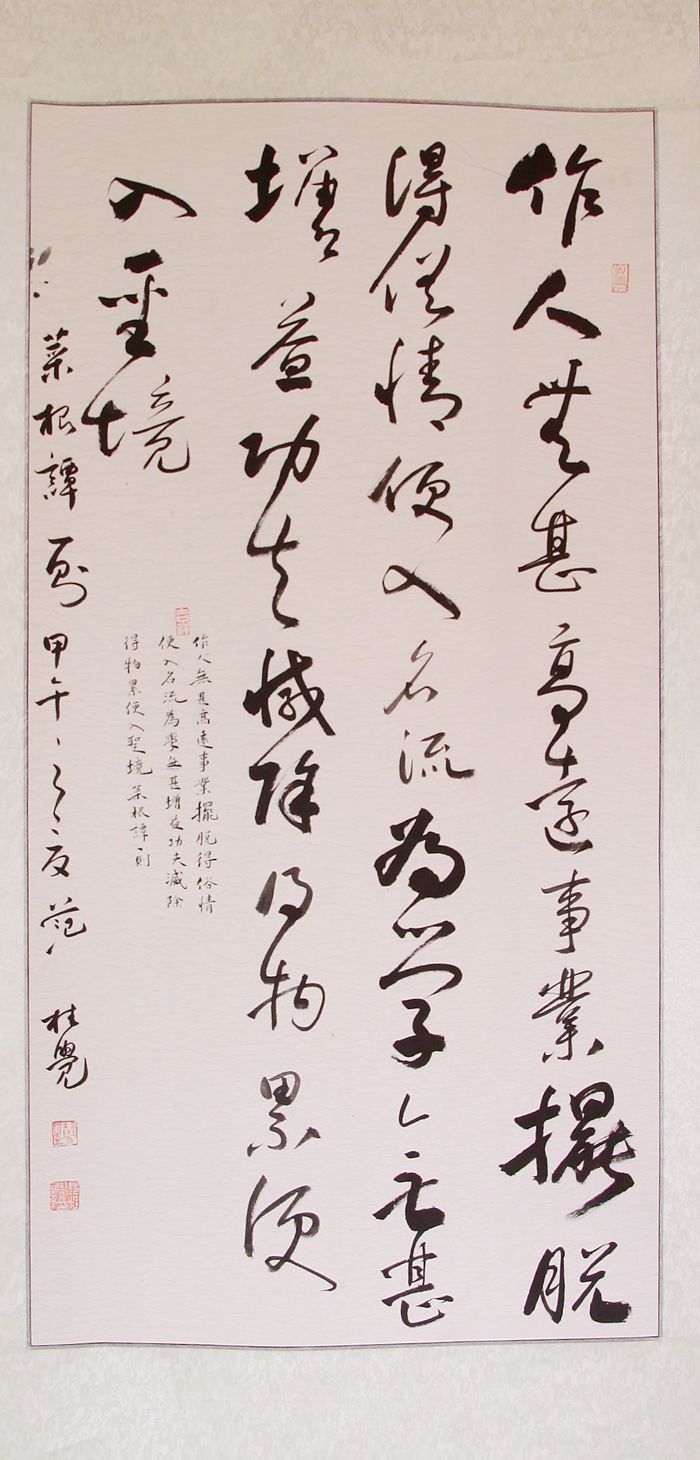 作人無甚高遠事業擺脫
得俗情便入名流為學無甚
增益功夫減除得物累便
入聖境
作人無甚高遠事業擺脫得俗情
便入名流為學無甚增益功夫減除
得物累便入聖境菜根譚一則
菜根譚一則甲午之夏范桂覺